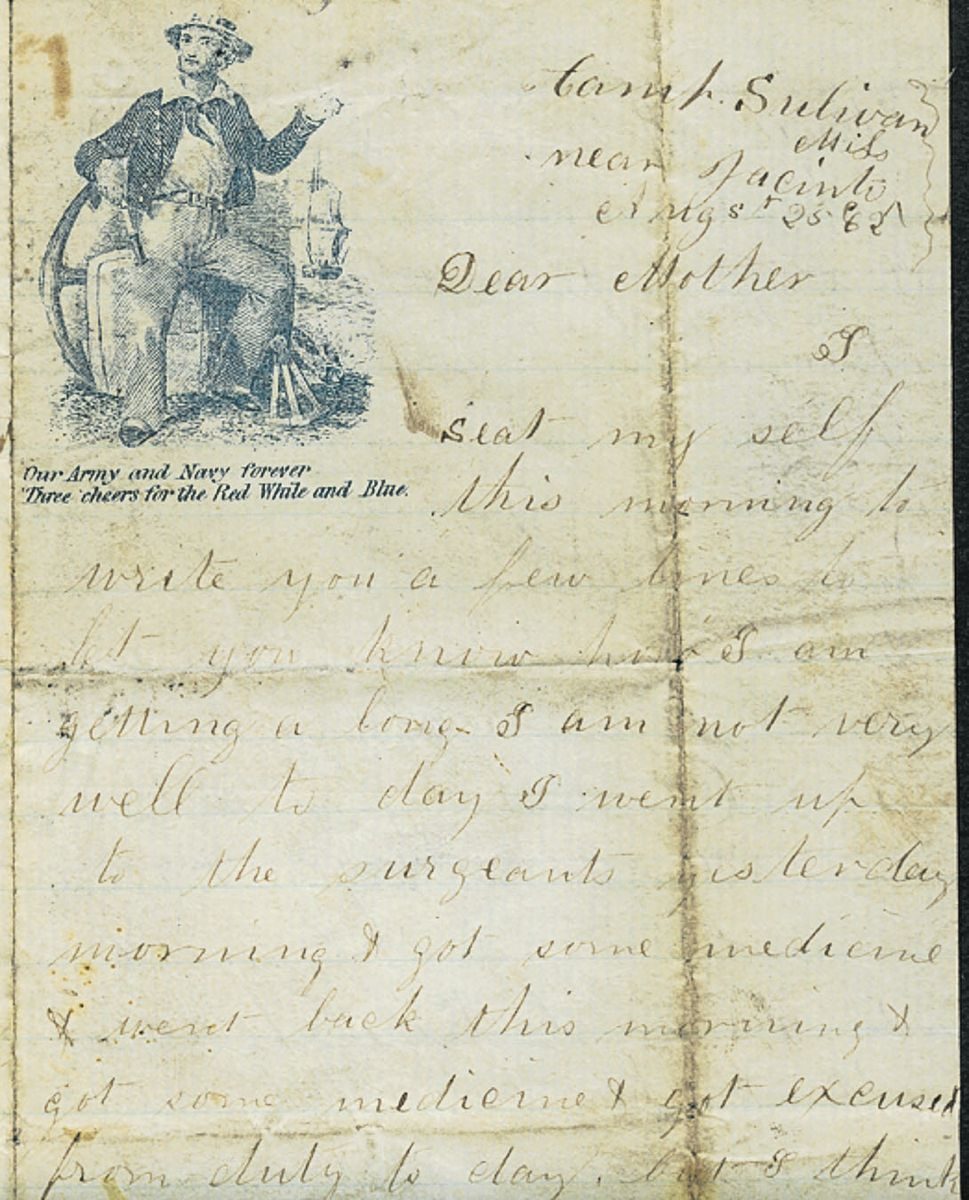 Camp. Sulivan
Miss
near Jacinto
Augst 25 62
Dear Mother
I
seat my self
this morning to
Our Army and Navy forever
Three cheers for the Red White and Blue.
write you a few lines to
let you know how I am
getting a long. I am not very
well to day I went up
to the surgeants yisterday
morning & got some medicine
& went back this morning &
got some medicine & got excused
from duty to day. but I think